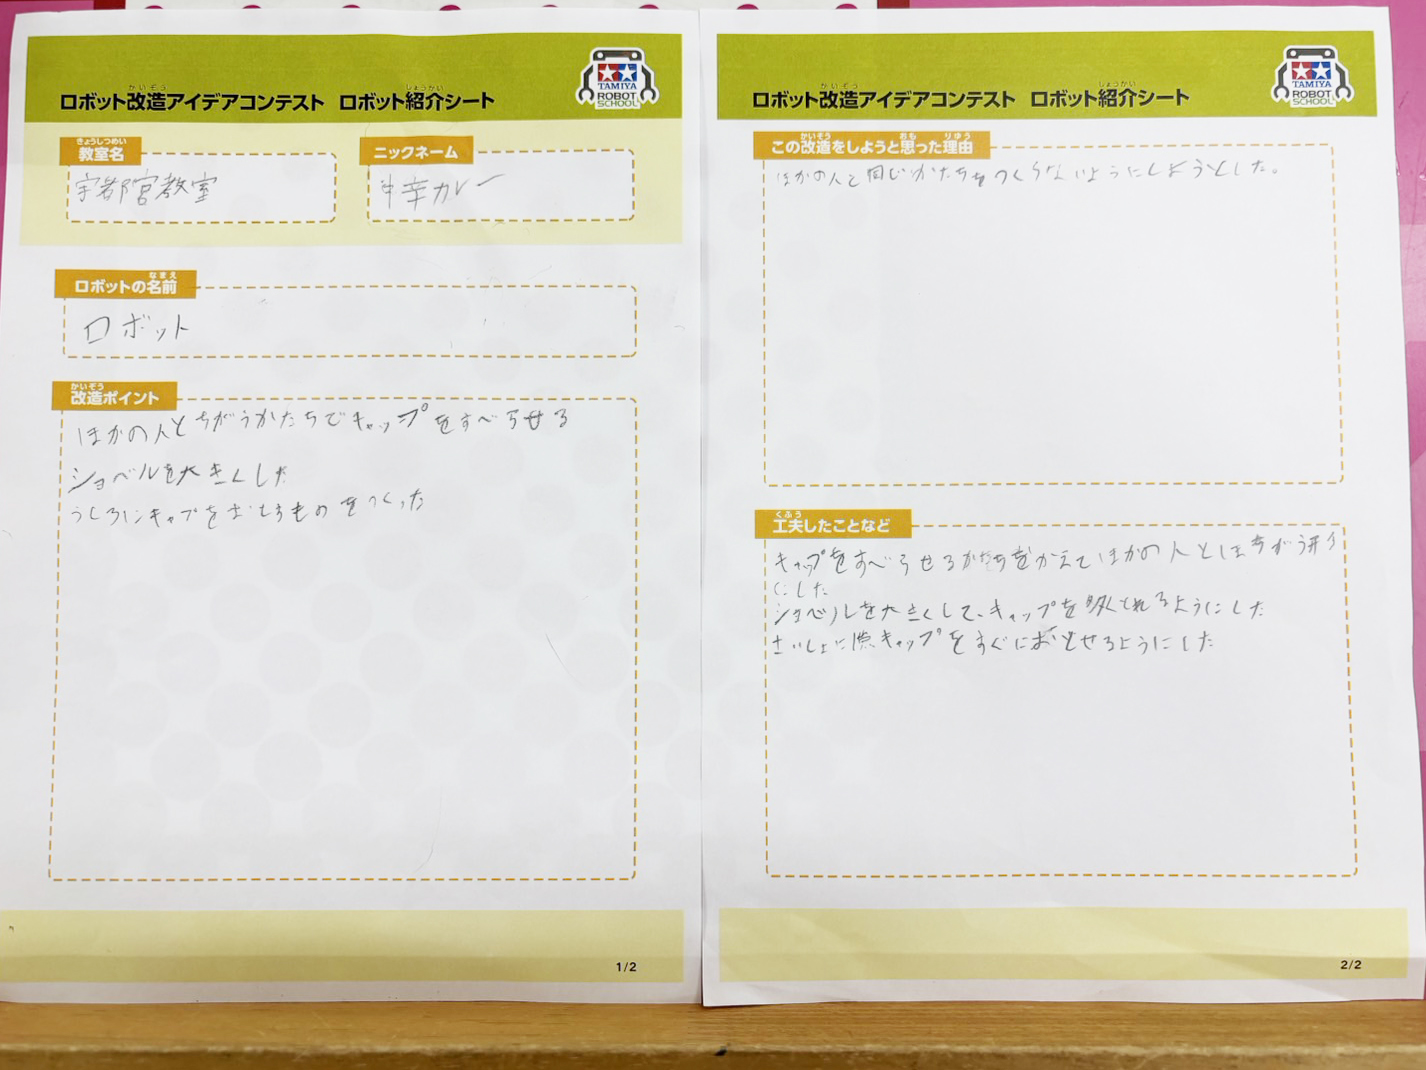 ロボット改造アイデアコンテスト ロボット紹介シート
かいぞう
しょうかい
TAMIYA
ROBOT
SCHOOL
きょうしつめい
教室名
宇都宮教室
ニックネーム
辛カレー
なまえ
ロボットの名前
ロボット
かいぞう
改造ポイント
ほかの人とちがうかたちでキャップをすべらせる
ショベルを大きくした
うしろにキャップをおとすものをつくった
1/2
ロボット改造アイデアコンテスト ロボット紹介シート
かいぞう
しょうかい
TAMIYA
ROBOT
SCHOOL
かいぞう おも りゆう
この改造をしようと思った理由
ほかの人と同じかたちをつくらないようにしようとした。
くふう
工夫したことなど
キャップをすべらせるかたちをかえてほかの人とはちがう
にした
ショベルを大きくして、キャップを多くとれるようにした
さいしょにキャップをすぐにおとせるようにした
2/2